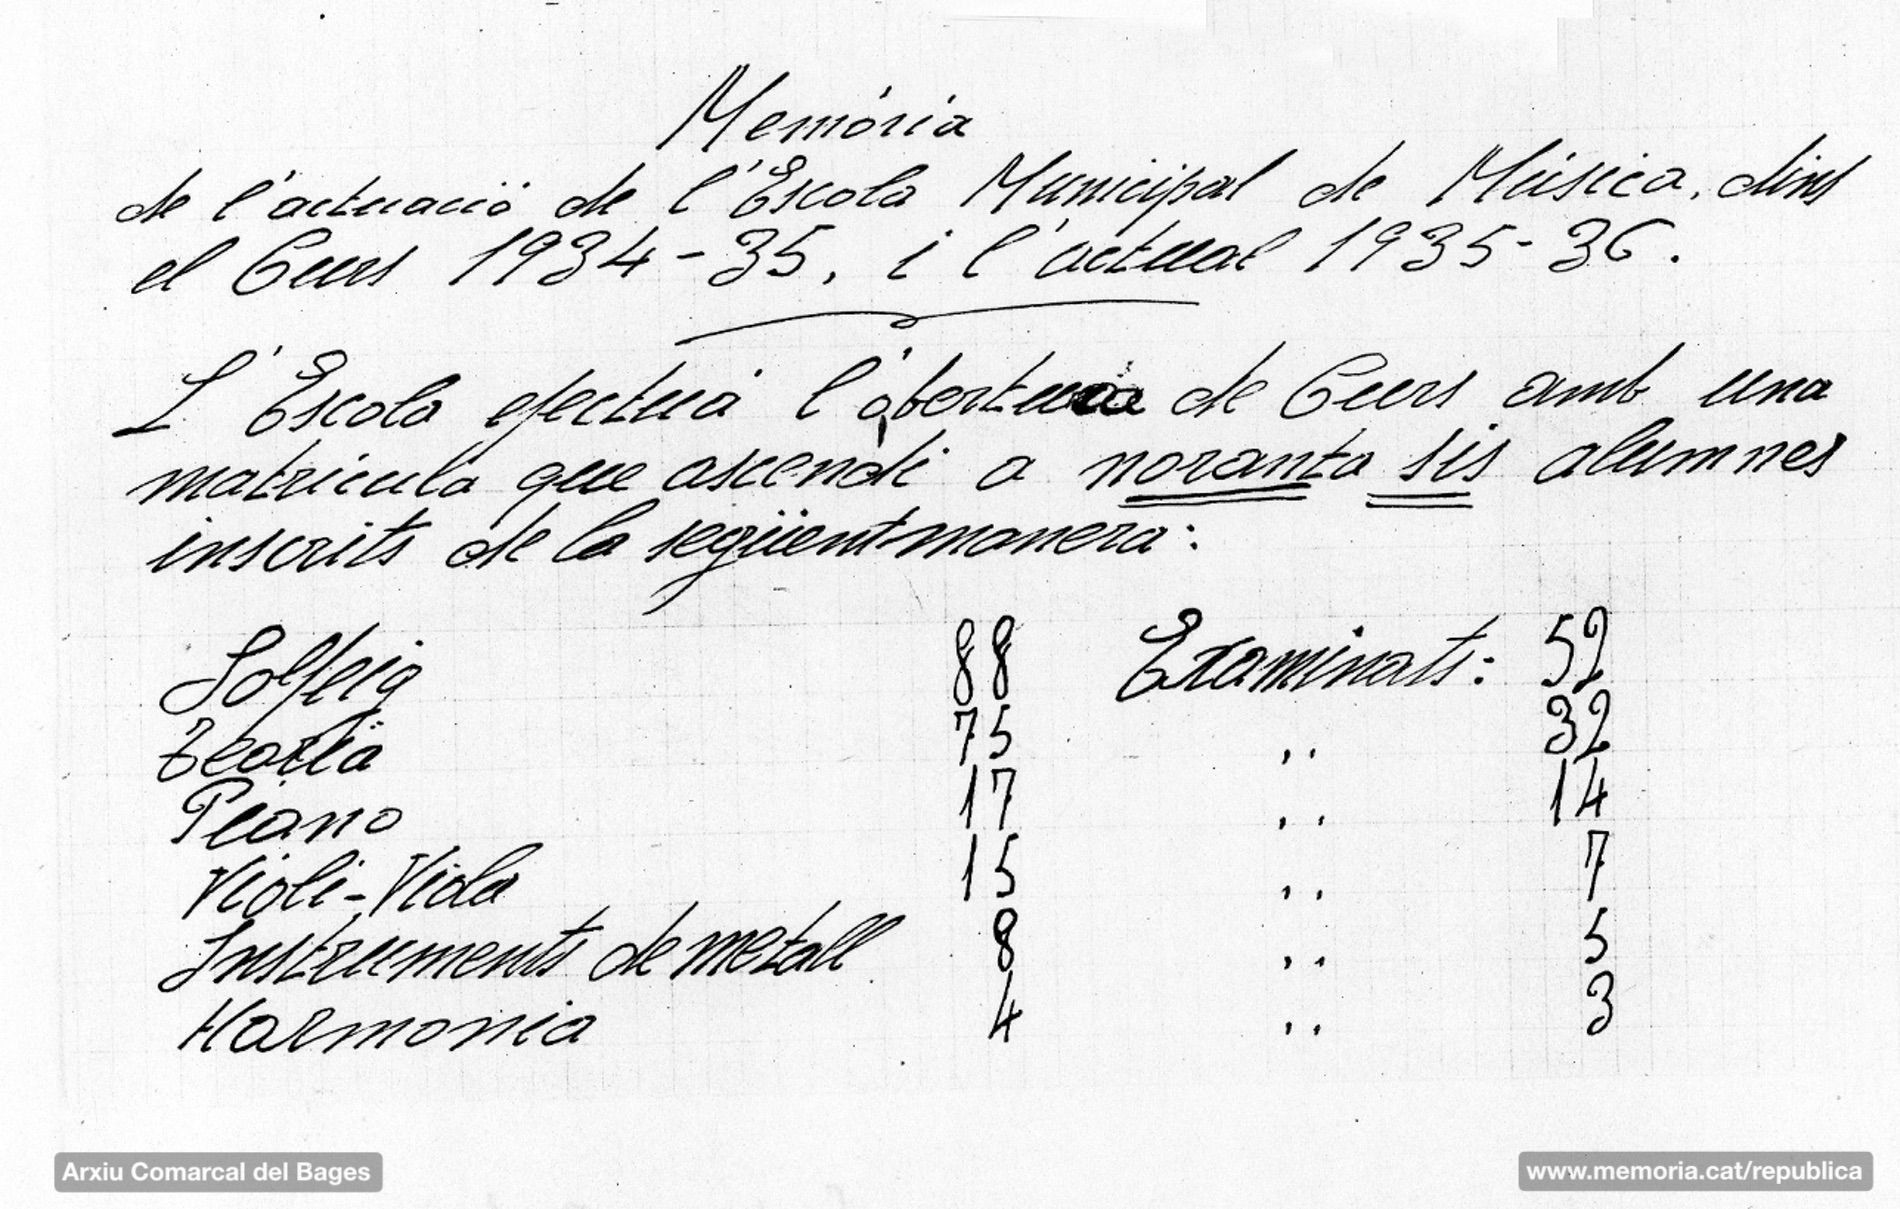 Memória
de l'actuació de l'Escola Municipal de Música, dins
el Curs 1934-35, i l'actual 1935-36.
L'Escola efectuá l'obertura de Curs amb una
matrícula que ascendí a noranta sis alumnes
inscrits de la següent manera:
Solfeig 88 Examinats: 52
Teoría 75 ,, 32
Piano 17 ,, 14
Violi-Viola 15 ,, 7
Instruments de metall 8 ,, 5
Harmonia 4 ,, 3
Arxiu Comarcal del Bages www.memoria.cat/republica